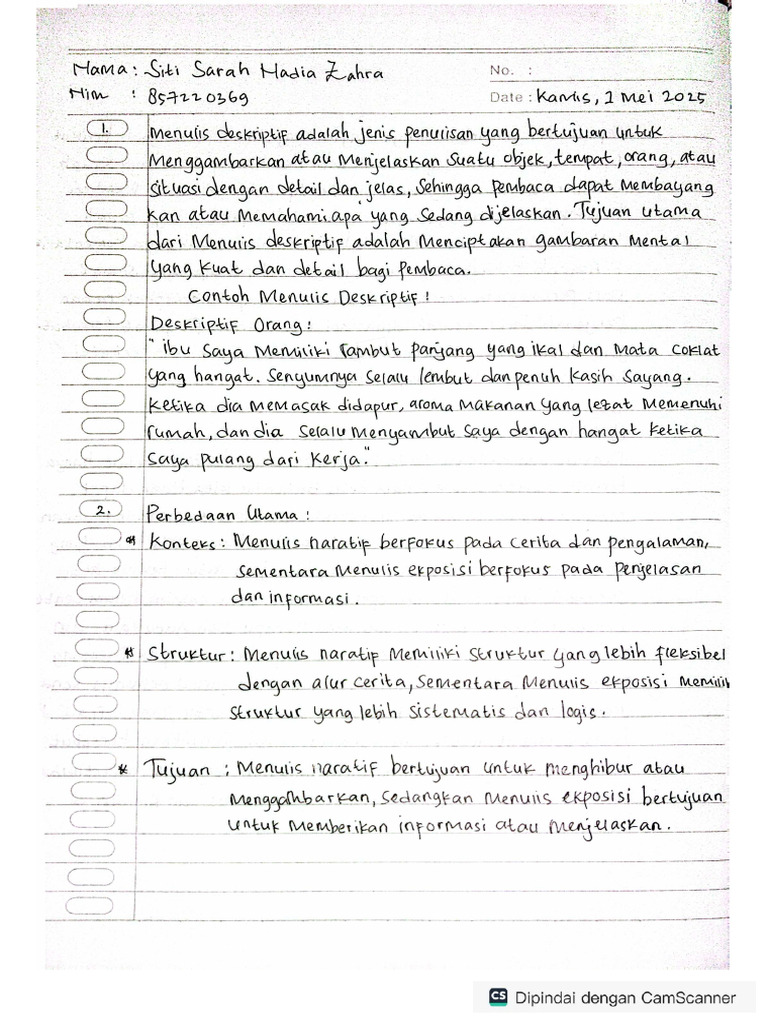 Nama : Siti Sarah Nadia Zahra
No. :
Nim : 857220369
Date : Kamis, 1 Mei 2025
1. Menulis deskriptif adalah jenis penulisan yang bertujuan untuk
Menggambarkan atau Menjelaskan Suatu objek, tempat, orang, atau
situasi dengan detail dan jelas, Sehingga Pembaca dapat Membayang
kan atau Memahami apa yang Sedang dijelaskan. Tujuan utama
dari Menulis deskriptif adalah Menciptakan gambaran Mental
yang Kuat dan detail bagi Pembaca.
Contoh Menulis Deskriptif !
Deskriptif Orang :
"ibu Saya Memiliki rambut panjang yang ikal dan Mata Coklat
yang hangat. Senyumnya Selalu lembut dan penuh Kasih Sayang.
Ketika dia Memasak didapur, aroma Makanan yang lezat Memenuhi
rumah, dan dia Selalu Menyambut Saya dengan hangat Ketika
Saya pulang dari Kerja."
2. Perbedaan Utama :
* Konteks : Menulis naratif berfokus pada Cerita dan pengalaman,
Sementara Menulis eksposisi berfokus pada penjelasan
dan informasi.
* Struktur : Menulis naratif Memiliki Struktur yang lebih fleksibel
dengan alur cerita, Sementara Menulis eksposisi Memilik
Struktur yang lebih Sistematis dan logis.
* Tujuan : Menulis naratif bertujuan untuk menghibur atau
Menggambarkan, Sedangkan Menulis eksposisi bertujuan
untuk Memberikan informasi atau Menjelaskan.
CS Dipindai dengan CamScanner